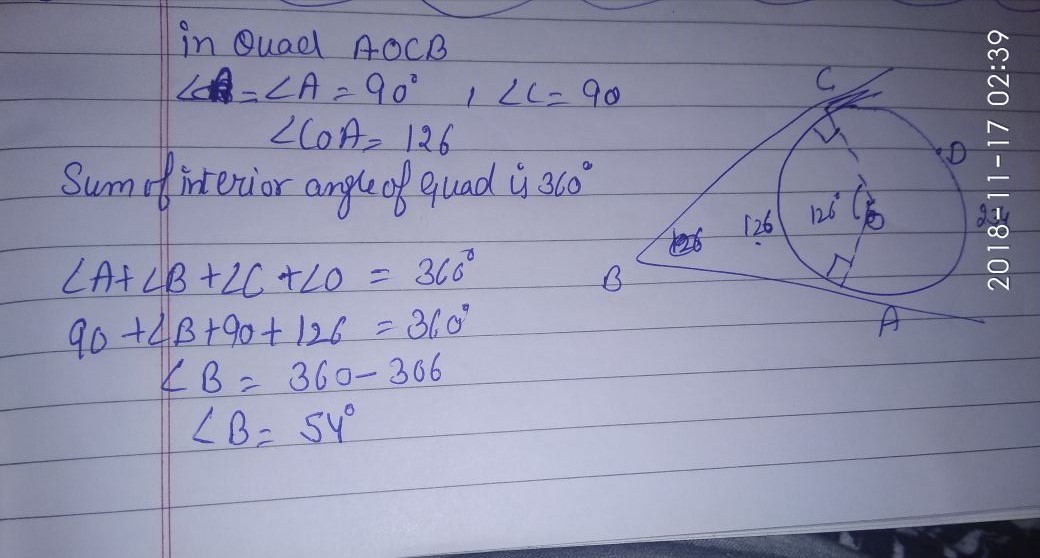 in Quad AOCB
= ∠A = 90° , ∠C = 90
∠COA = 126
Sum of interior angle of quad is 360°
∠A + ∠B + ∠C + ∠O = 360°
90 + ∠B + 90 + 126 = 360°
∠B = 360 - 306
∠B = 54°
C
D
126
126°
B
A
2018-11-17 02:39